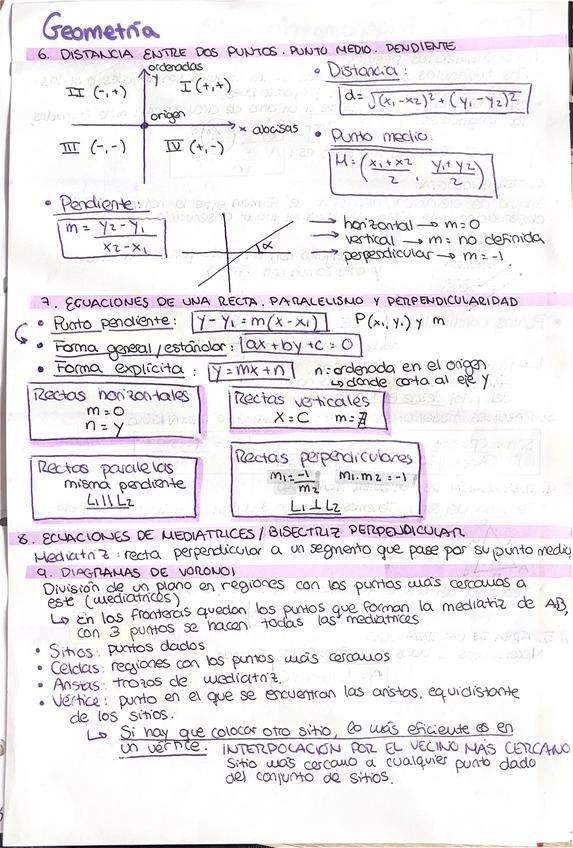 Geometría
6. DISTANCIA ENTRE DOS PUNTOS. PUNTO MEDIO. PENDIENTE
ordenadas
y
II (-,+)
I (+,+)
origen
x abcisas
III (-,-)
IV (+,-)
• Distancia:
d = √(x₁-x₂)² + (y₁-y₂)²
• Punto medio:
M = (x₁+x₂/2, y₁+y₂/2)
• Pendiente:
m = y₂-y₁/x₂-x₁
α
→ horizontal → m=0
→ vertical → m= no definida
→ perpendicular → m=-1
7. ECUACIONES DE UNA RECTA. PARALELISMO Y PERPENDICULARIDAD
• Punto pendiente: y-y₁=m(x-x₁) P(x₁,y₁) y m
• Forma general/estándar: ax+by+c=0
• Forma explícita: y=mx+n n=ordenada en el origen
↳ donde corta al eje y
Rectas horizontales
m=0
n=y
Rectas verticales
x=c m=∄
Rectas paralelas
misma pendiente
L₁ || L₂
Rectas perpendiculares
m₁=-1/m₂ m₁·m₂=-1
L₁ ⊥ L₂
8. ECUACIONES DE MEDIATRICES/BISECTRIZ PERPENDICULAR
Mediatriz: recta perpendicular a un segmento que pase por su punto medio
9. DIAGRAMAS DE VORONOI
División de un plano en regiones con los puntos más cercanos a
este (mediatrices)
↳ En las fronteras quedan los puntos que forman la mediatriz de AB,
con 3 puntos se hacen todas las mediatrices
• Sitios: puntos dados
• Celdas: regiones con los puntos más cercanos
• Aristas: trozos de mediatriz.
• Vértice: punto en el que se encuentran las aristas, equidistante
de los sitios.
↳ Si hay que colocar otro sitio, lo más eficiente es en
un vértice. INTERPOLACIÓN POR EL VECINO MÁS CERCANO
Sitio más cercano a cualquier punto dado
del conjunto de sitios.